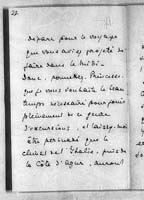 départ pour le voyage
que vous aviez projeté de
faire dans le Midi.
Donc, permettez, Princesse,
que je vous souhaite le beau
temps nécessaire pour jouir
pleinement de ce genre
d'excursions, et laissez-moi
être persuadé que le
climat de l'Italie, puis de
la Côte d'Azur, auront